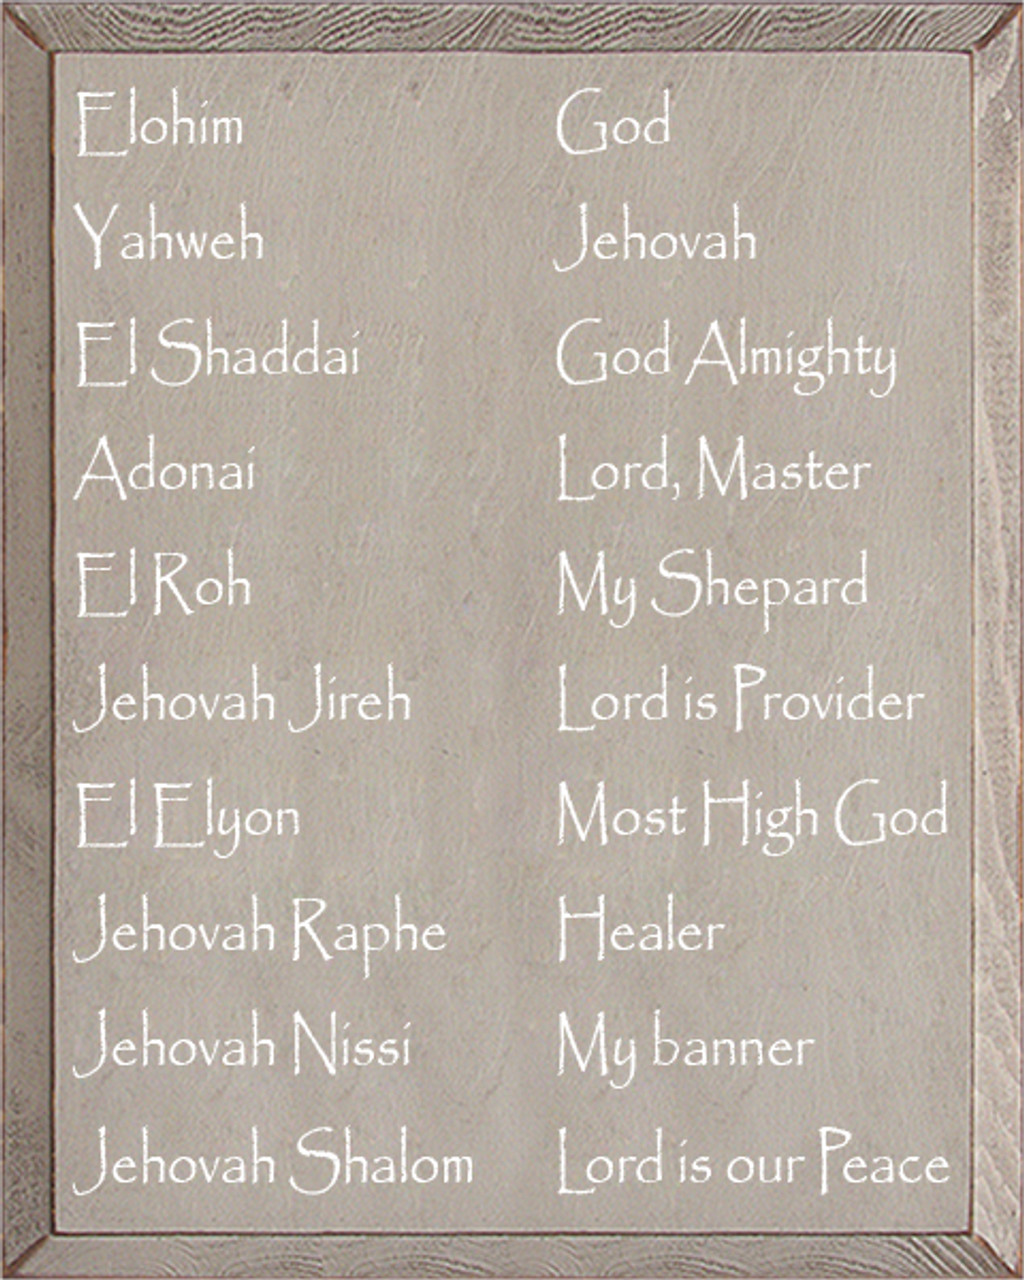 Elohim God
Yahweh Jehovah
El Shaddai God Almighty
Adonai Lord, Master
El Roh My Shepard
Jehovah Jireh Lord is Provider
El Elyon Most High God
Jehovah Raphe Healer
Jehovah Nissi My banner
Jehovah Shalom Lord is our Peace